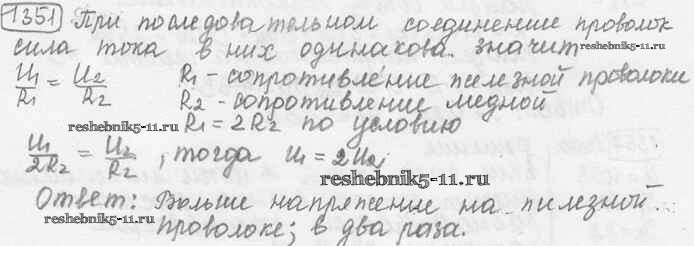 1351 При последовательном соединение проволок
сила тока в них одинакова. Значит
reshebnik5-11.ru
U₁/R₁ = U₂/R₂ R₁ - сопротивление железной проволоки
R₂ - сопротивление медной
reshebnik5-11.ru
R₁ = 2R₂ по условию
U₁/2R₂ = U₂/R₂, тогда U₁ = 2U₂;
reshebnik5-11.ru
Ответ: Больше напряжение на железной
проволоке; в два раза.